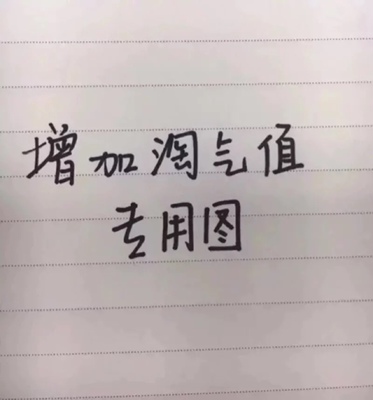 增加淘气值
专用图